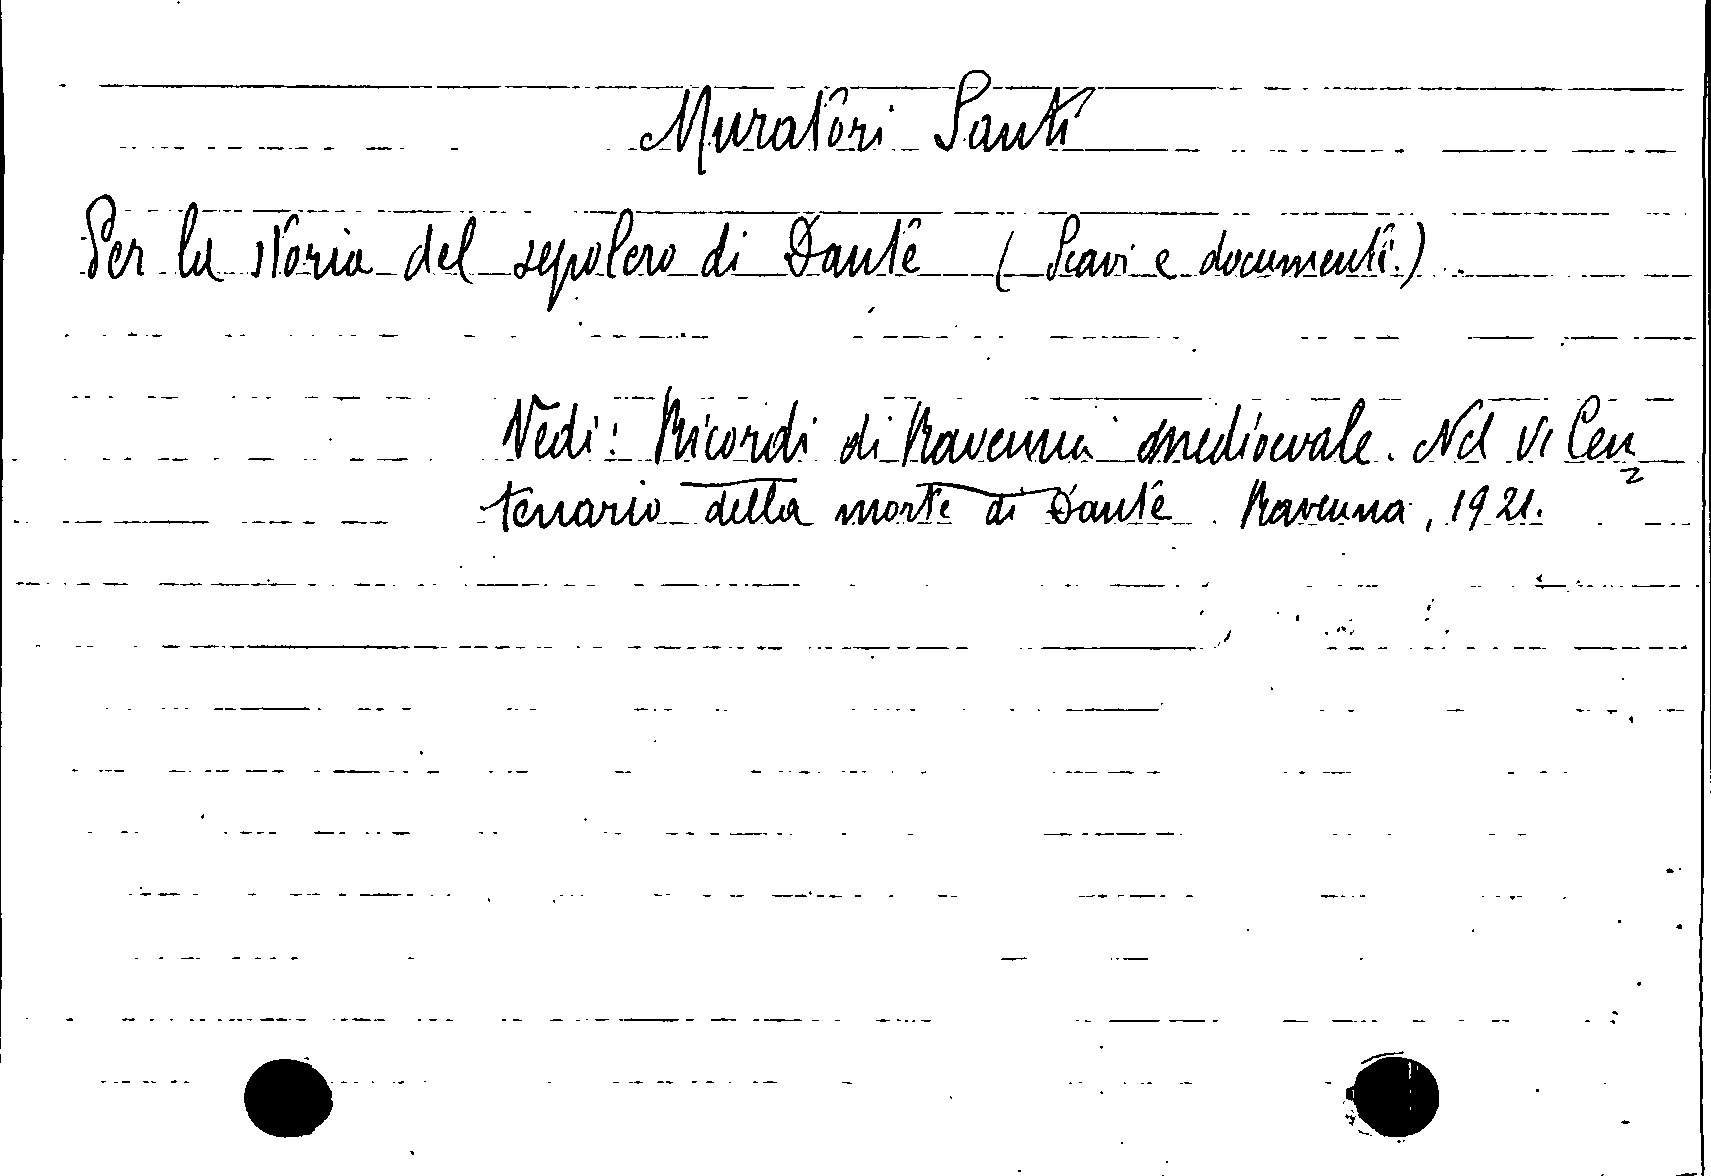 Muratori Santi
Per la storia del sepolcro di Dante (Scavi e documenti.)
Vedi: Ricordi di Ravenna medioevale. Nel VI Cen=
tenario della morte di Dante. Ravenna, 1921.